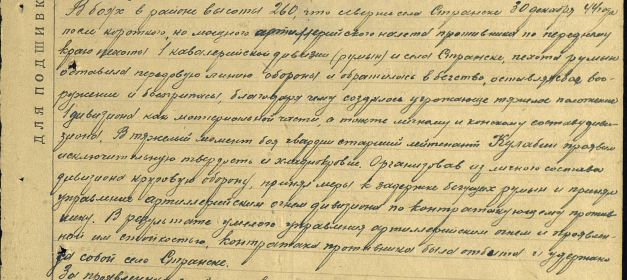 ДЛЯ ПОДШИВК
В боях в районе высоты 260, что севернее села Странске 30 декабря 44 года
после короткого, но мощного артиллерийского налета противника по переднему
краю пехоты 1 кавалерийской дивизии (румын) и села Странске, пехота румын
оставила передовую линию обороны и обратилась в бегство, оставляя свое воо-
ружение и боеприпасы, благодаря чему создалось угрожающе тяжелое положение
1 дивизиона как материальной части, а также личному и конскому составу диви-
зиона. В тяжелый момент боя гвардии старший лейтенант Кулавин проявил
исключительную твердость и хладнокровие. Организовав из личного состава
дивизиона круговую оборону, принял меры к задержке бегущих румын и принял
управление артиллерийским огнем дивизиона по контратакующему против-
нику. В результате умелого управления артиллерийским огнем и проявлен-
ной им стойкостью, контратака противника была отбита и удержано
за собой село Странске.
За проявленные